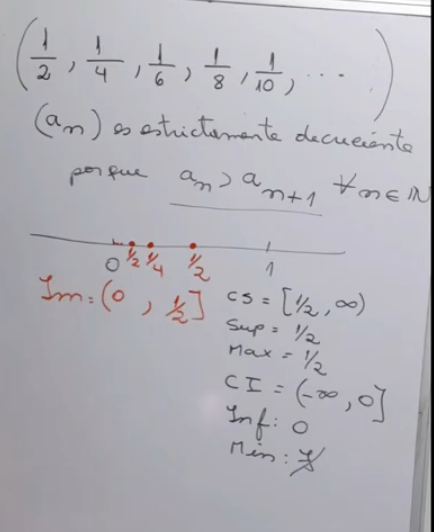 (1/2, 1/4, 1/6, 1/8, 1/10, ...)
(an) es estrictamente decreciente
porque an > an+1 ∀n∈ℕ
0 1/2 1/4 1/2 1
Im: (0, 1/2]
CS = [1/2, ∞)
Sup = 1/2
Max = 1/2
CI = (-∞, 0]
Inf: 0
Min: ∄